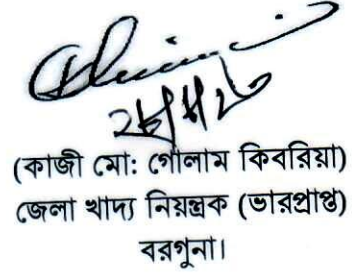 (কাজী মো: গোলাম কিবরিয়া)
জেলা খাদ্য নিয়ন্ত্রক (ভারপ্রাপ্ত)
বরগুনা।